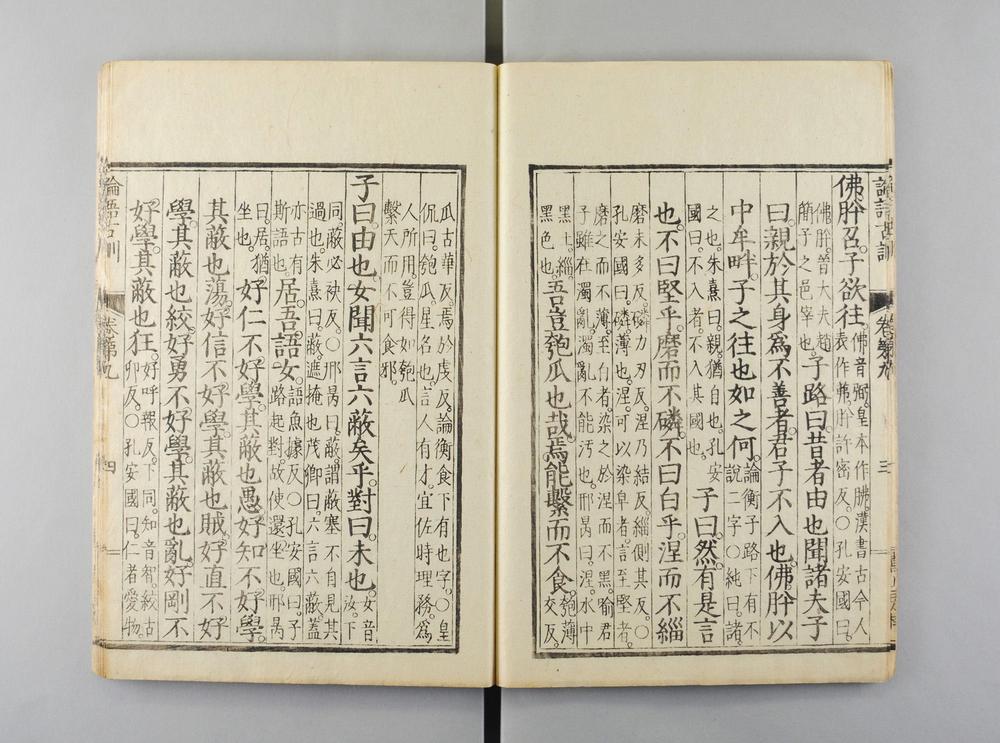 佛肸召。子欲往。佛音弼。皇本作胇。漢書古今人
表作茀肸許密反。○孔安國曰。
佛肸。晉大夫趙
簡子之邑宰也。子路曰。昔者由也聞諸夫子
曰。親於其身爲不善者。君子不入也。佛肸以
中牟畔。子之往也如之何。論衡子路下有不
說二字。○純曰。諸
之也。朱熹曰。親猶自也。孔安
國曰。不入者。不入其國也。子曰。然。有是言
也。不曰堅乎。磨而不磷。不曰白乎。涅而不緇
磨末多反。磷力刃反。涅乃結反。緇側其反。○
孔安國曰。磷薄也。涅可以染皁者。言至堅者
磨之而不薄。至白者染之於涅而不黑。喻君
子雖在濁亂。濁亂不能汚也。邢昺曰。涅。水中
黑土。緇
黑色也。吾豈匏瓜也哉。焉能繫而不食。匏薄
交反。
瓜古華反。焉於虔反。論衡食下有也字。○皇
侃曰。匏瓜。星名也。言人有才。宜佐時理務。爲
人所用。豈得如匏瓜
繫天而不可食邪。
子曰。由也女聞六言六蔽矣乎。對曰。未也。女音
汝。下
同。蔽必袂反。○邢昺曰。蔽謂蔽塞不自見其
過也。朱熹曰。蔽遮掩也。茂卿曰。六言六蔽蓋
亦古有
斯語也。居。吾語女。語魚據反。○孔安國曰。子
路起對。故使還坐也。邢昺
曰。居猶
坐也。好仁不好學。其蔽也愚。好知不好學。
其蔽也蕩。好信不好學。其蔽也賊。好直不好
學。其蔽也絞。好勇不好學。其蔽也亂。好剛不
好學。其蔽也狂。好呼報反。下同。知音智。絞古
卯反。○孔安國曰。仁者愛物。
論語古訓 卷第九 四